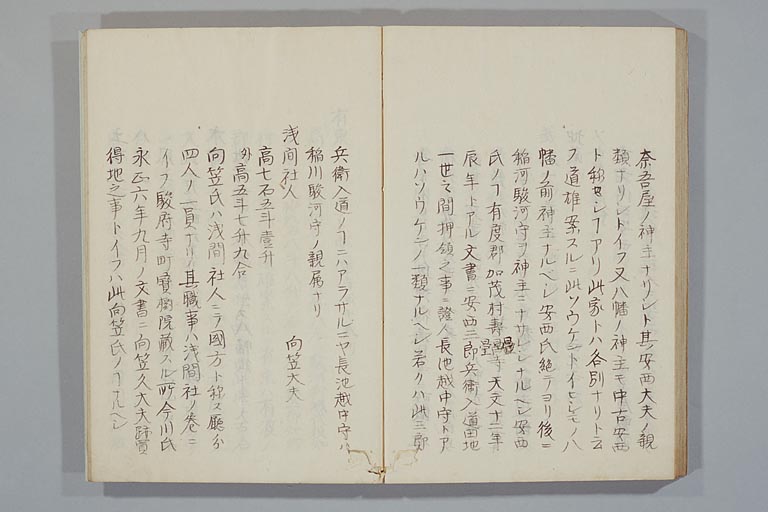 奈吾屋ノ神主ナリシト其ノ安西大夫ノ親
類ナリシトイフ又八幡ノ神主モ中古安西
ト称セシヿアリ此家トハ各別ナリト云
フ道雄案スルニ此ソウケントイヒシモノハ
幡ノ前神主ナルヘシ安西氏絶テヨリ後ニ
稲河駿河守ヲ神主ニナサレシナルヘシ安西
氏ノヿ有度郡加茂村壽曇寺天文十二年
曇
辰年トアル文書ニ安西三郎兵衛入道田地
一世之間押領之事ニ證人長池越中守トア
ルハソウケンノ一類ナルヘシ若クハ此三郎
兵衛入道ノヿニハアラサルニヤ長池越中守ハ
稲川駿河守ノ親属ナリ
浅间社人 向笠大夫
高七石五斗壹升
外高五斗七升九合
向笠氏ハ浅間社人ニテ國方ト称ス廳分
四人ノ一員ナリ其職事ハ浅間社ノ巻ニ
イフ駿府寺町寳樹院蔵スル所今川氏
永正六年九月ノ文書ニ向笠久大夫跡買
得地之事トイフハ此向笠氏ノヿナルヘシ